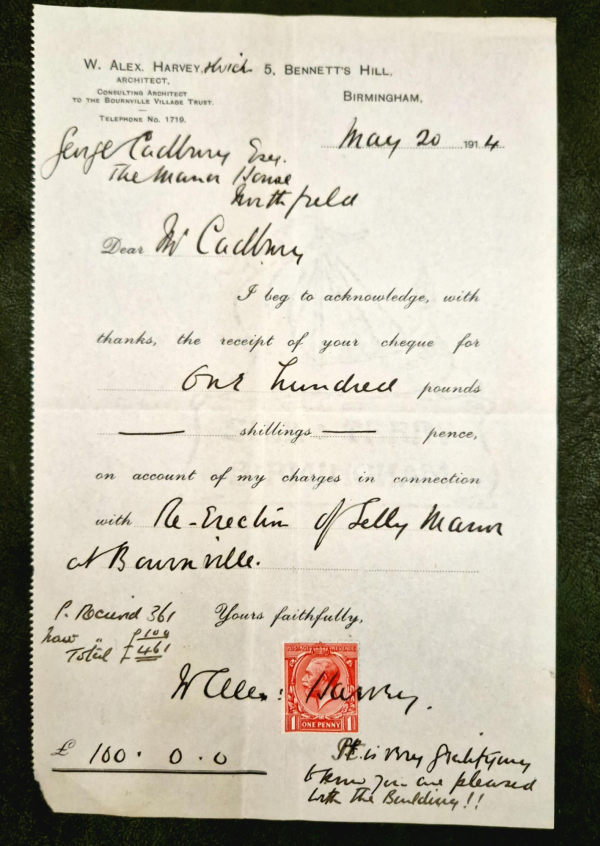 W. ALEX. HARVEY, 5, BENNETT'S HILL,
ARCHITECT,
CONSULTING ARCHITECT
TO THE BOURNVILLE VILLAGE TRUST.
BIRMINGHAM,
TELEPHONE No. 1719.
May 20 1914
George Cadbury Esq.
The Manor House
Northfield
Dear Mr Cadbury
I beg to acknowledge, with
thanks, the receipt of your cheque for
One hundred pounds
shillings pence,
on account of my charges in connection
with Re-Erection of Selly Manor
at Bournville.
P. Received 361
now " £100
Total £461
Yours faithfully,
W Alex. Harvey.
POSTAGE REVENUE
1 ONE PENNY 1
£ 100 . 0 . 0
It is very gratifying
to know you are pleased
with the Building!!